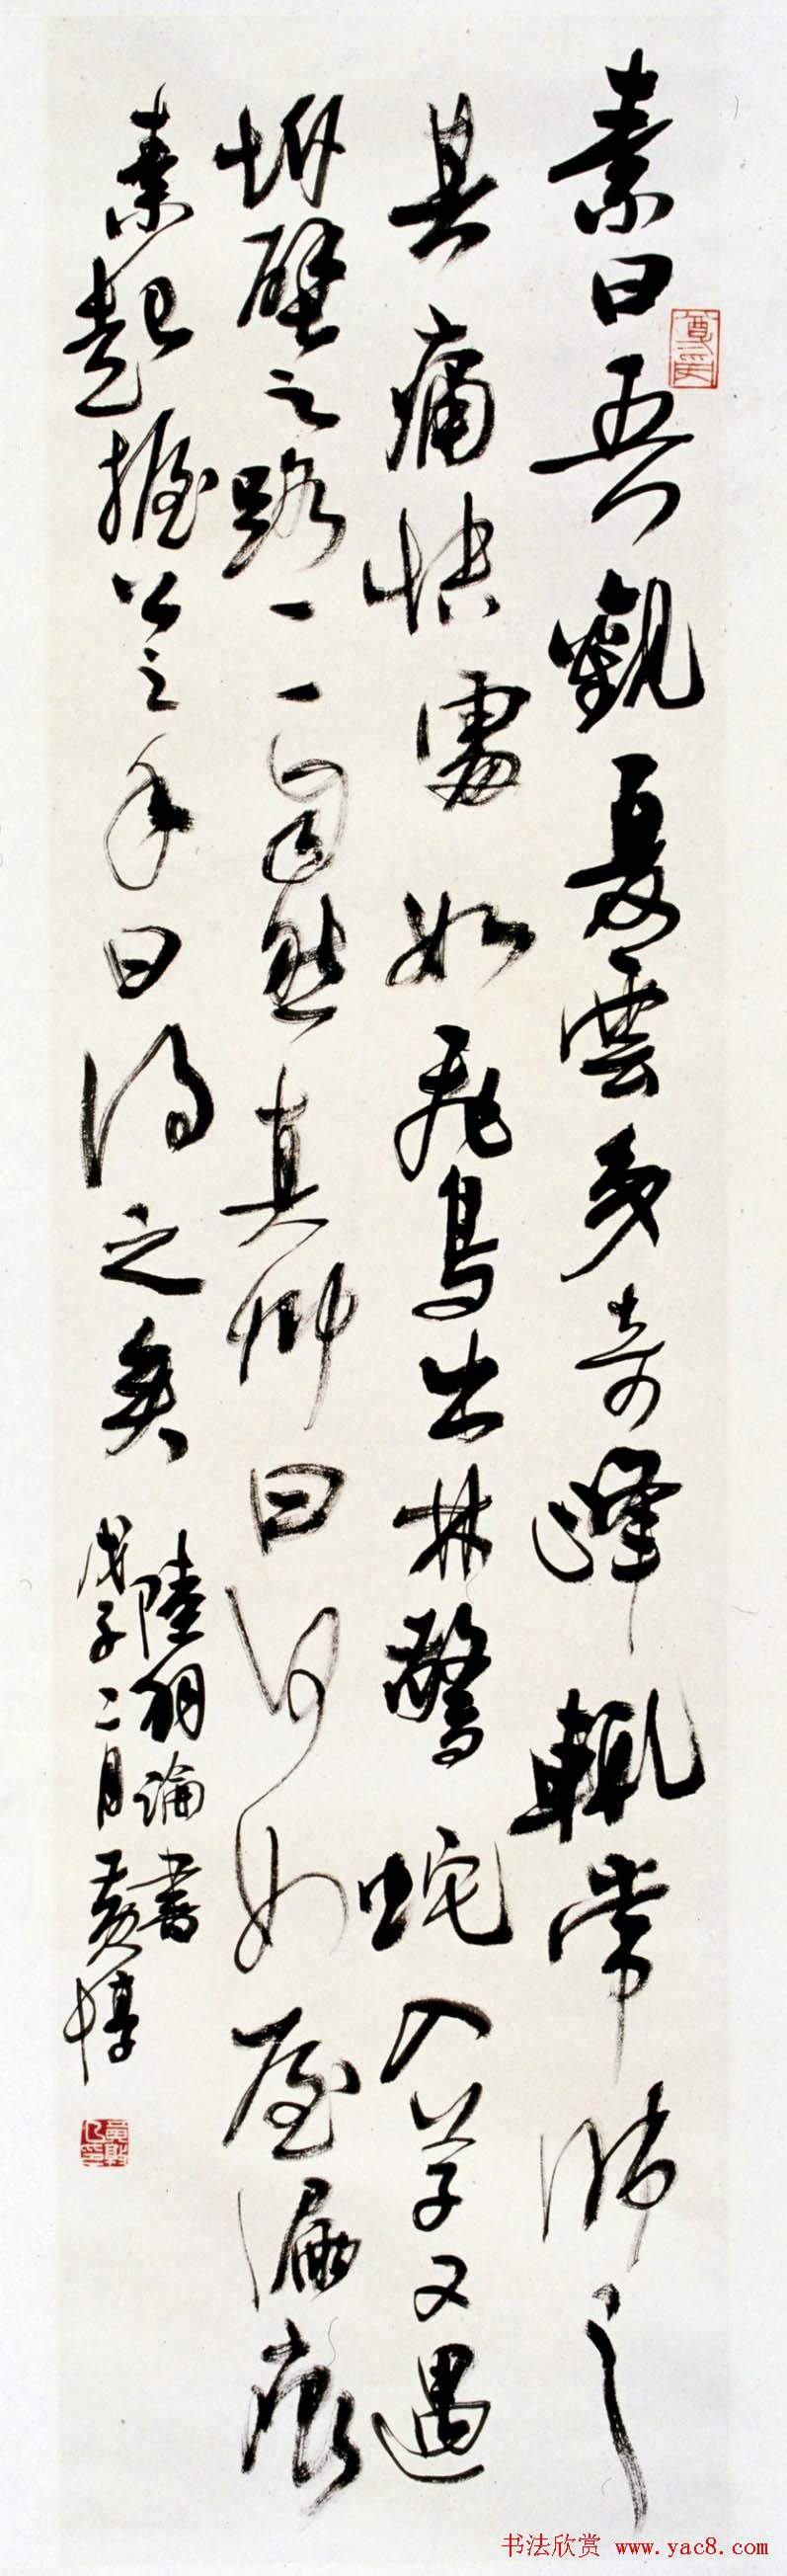 素曰吾觀夏雲多奇峰輒常師之
其痛快處如飛鳥出林驚蛇入草又遇
坼壁之路一一自然真卿曰何如屋漏痕
素起握公之手曰得之矣
陸羽論書
戊子二月黃惇
书法欣赏 www.yac8.com